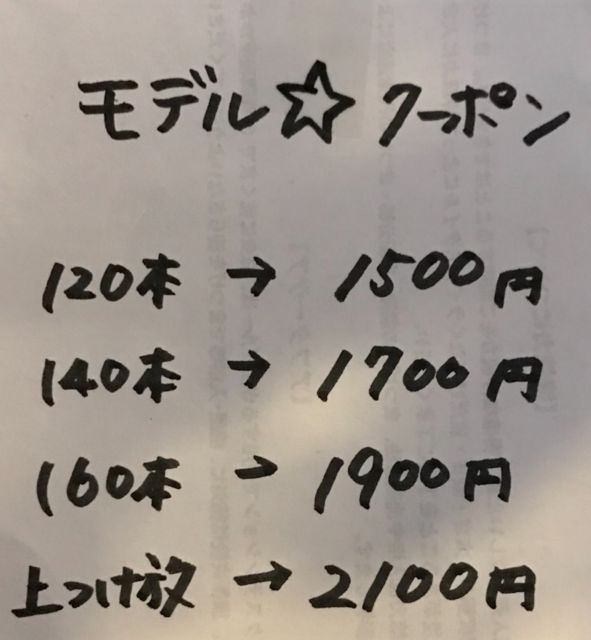 モデル☆クーポン
120本 → 1500円
140本 → 1700円
160本 → 1900円
上つけ放 → 2100円